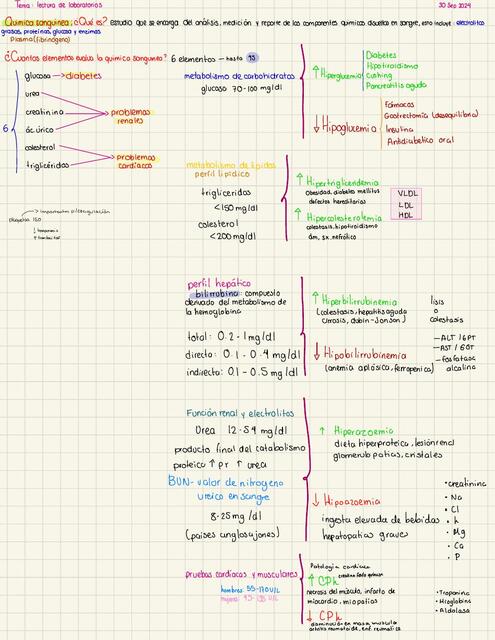 Tema: lectura de laboratorios
30 Sep 2024
Química sanguínea: ¿Qué es? estudio que se encarga del análisis, medición y reporte de los componentes químicos disueltos en sangre, esto incluye: electrolitos
grasas, proteínas, glucosa y enzimas
Plasma (fibrinógeno)
¿Cuantos elementos evalua la quimica sanguinea? 6 elementos - hasta
6
glucosa → diabetes
urea
creatinina
ác. úrico
→ problemas renales
colesterol
triglicéridos
→ problemas cardiacos
plaquetas 150
metabolismo de carbohidratos
glucosa 70-100 mg/dl
↑ Hiperglucemia
Diabetes
Hipotiroidismo
Cushing
Pancreatitis aguda
↓ Hipoglucemia
Farmacos
Gastrectomia (desequilibrio)
Insulina
Antidiabetico oral
metabolismo de lipidos
perfil lipidico
trigliceridos
<150 mg/dl
colesterol
<200 mg/dl
↑ Hipertrigliceridemia
Obesidad, diabetes mellitus
defectos hereditarios
↑ Hipercolesterolemia
colestasis, hipotiroidismo
dm, sx. nefrótico
VLDL
LDL
HDL
perfil hepático
bilirrubina: compuesto
derivado del metabolismo de
la hemoglobina
total: 0.2 - 1 mg/dl
directa: 0.1 - 0.4 mg/dl
indirecta: 0.1 - 0.5 mg/dl
↑ Hiperbilirrubinemia
(colestasis, hepatitis aguda
cirrosis, dubin-Jonson)
↓ Hipobilirrubinemia
(anemia aplásica, ferropenica)
lisis
o
colestasis
- ALT / GPT
- AST / GOT
- fosfatasa
alcalina
Función renal y electrolitos
Urea 12-54 mg/dl
producto final del catabolismo
proteico ↑ pr ↑ urea
BUN- valor de nitrogeno
ureico en sangre
8-25 mg/dl
(paises anglosajones)
↑ Hiperazoemia
dieta hiperproteica, lesión renal
glomerulo patias, cristales
↓ Hipoazoemia
ingesta elevada de bebidas
hepatopatias grave
• creatinina
• Na
• Cl
• K
• Mg
• Ca
• P
pruebas cardiacas y musculares
hombres: 55-170 U/L
Patologia cardiaca
↑ CPK
necrosis del músculo, infarto de
miocardio, miopatias
↓ CPK
disminución en masa muscular
• Troponina
• Mioglobina
• Aldolasa